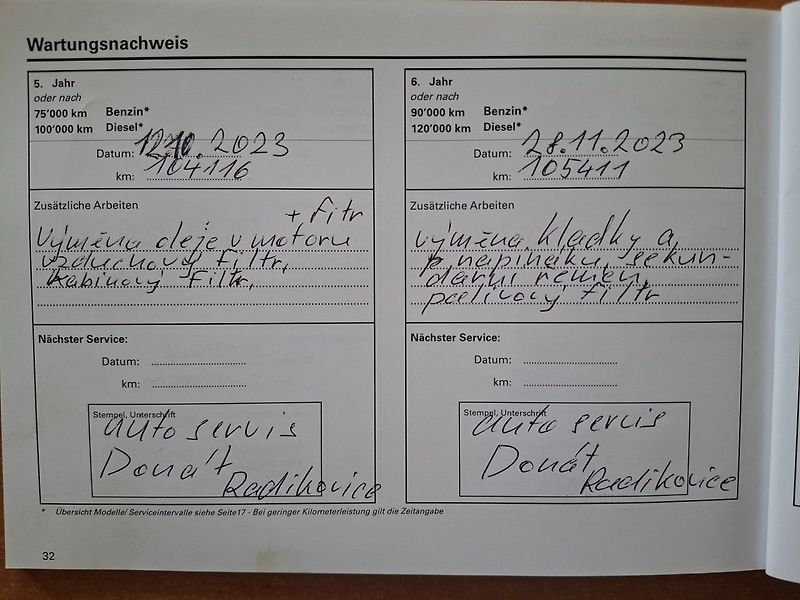 Wartungsnachweis
5. Jahr
oder nach
75'000 km Benzin*
100'000 km Diesel*
Datum: 12.10.2023
km: 104116
Zusätzliche Arbeiten
+ filtr
Výměna oleje v motoru
vzduchový filtr,
kabinový filtr,
Nächster Service:
Datum:
km:
Stempel, Unterschrift
Auto servis
Donát
Radikovice
6. Jahr
oder nach
90'000 km Benzin*
120'000 km Diesel*
Datum: 28.11.2023
km: 105411
Zusätzliche Arbeiten
výměna kladky a
napínáku, sekun-
dární řemen,
palivový filtr
Nächster Service:
Datum:
km:
Stempel, Unterschrift
Auto servis
Donát
Radikovice
* Übersicht Modelle/ Serviceintervalle siehe Seite17 - Bei geringer Kilometerleistung gilt die Zeitangabe
32